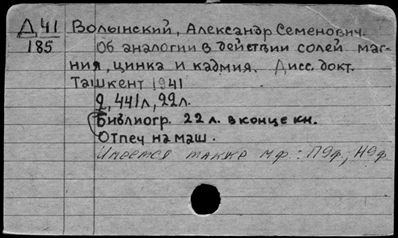 Д 41 Волынский, Александр Семенович.
185 Об аналогии в действии солей маг-
ния, цинка и кадмия. Дисс. докт.
Ташкент 1941
2, 441 л, 22 л.
Библиогр. 22 л. в конце кн.
Отпеч на маш.
Имеется также мф: П9ф, Н9ф